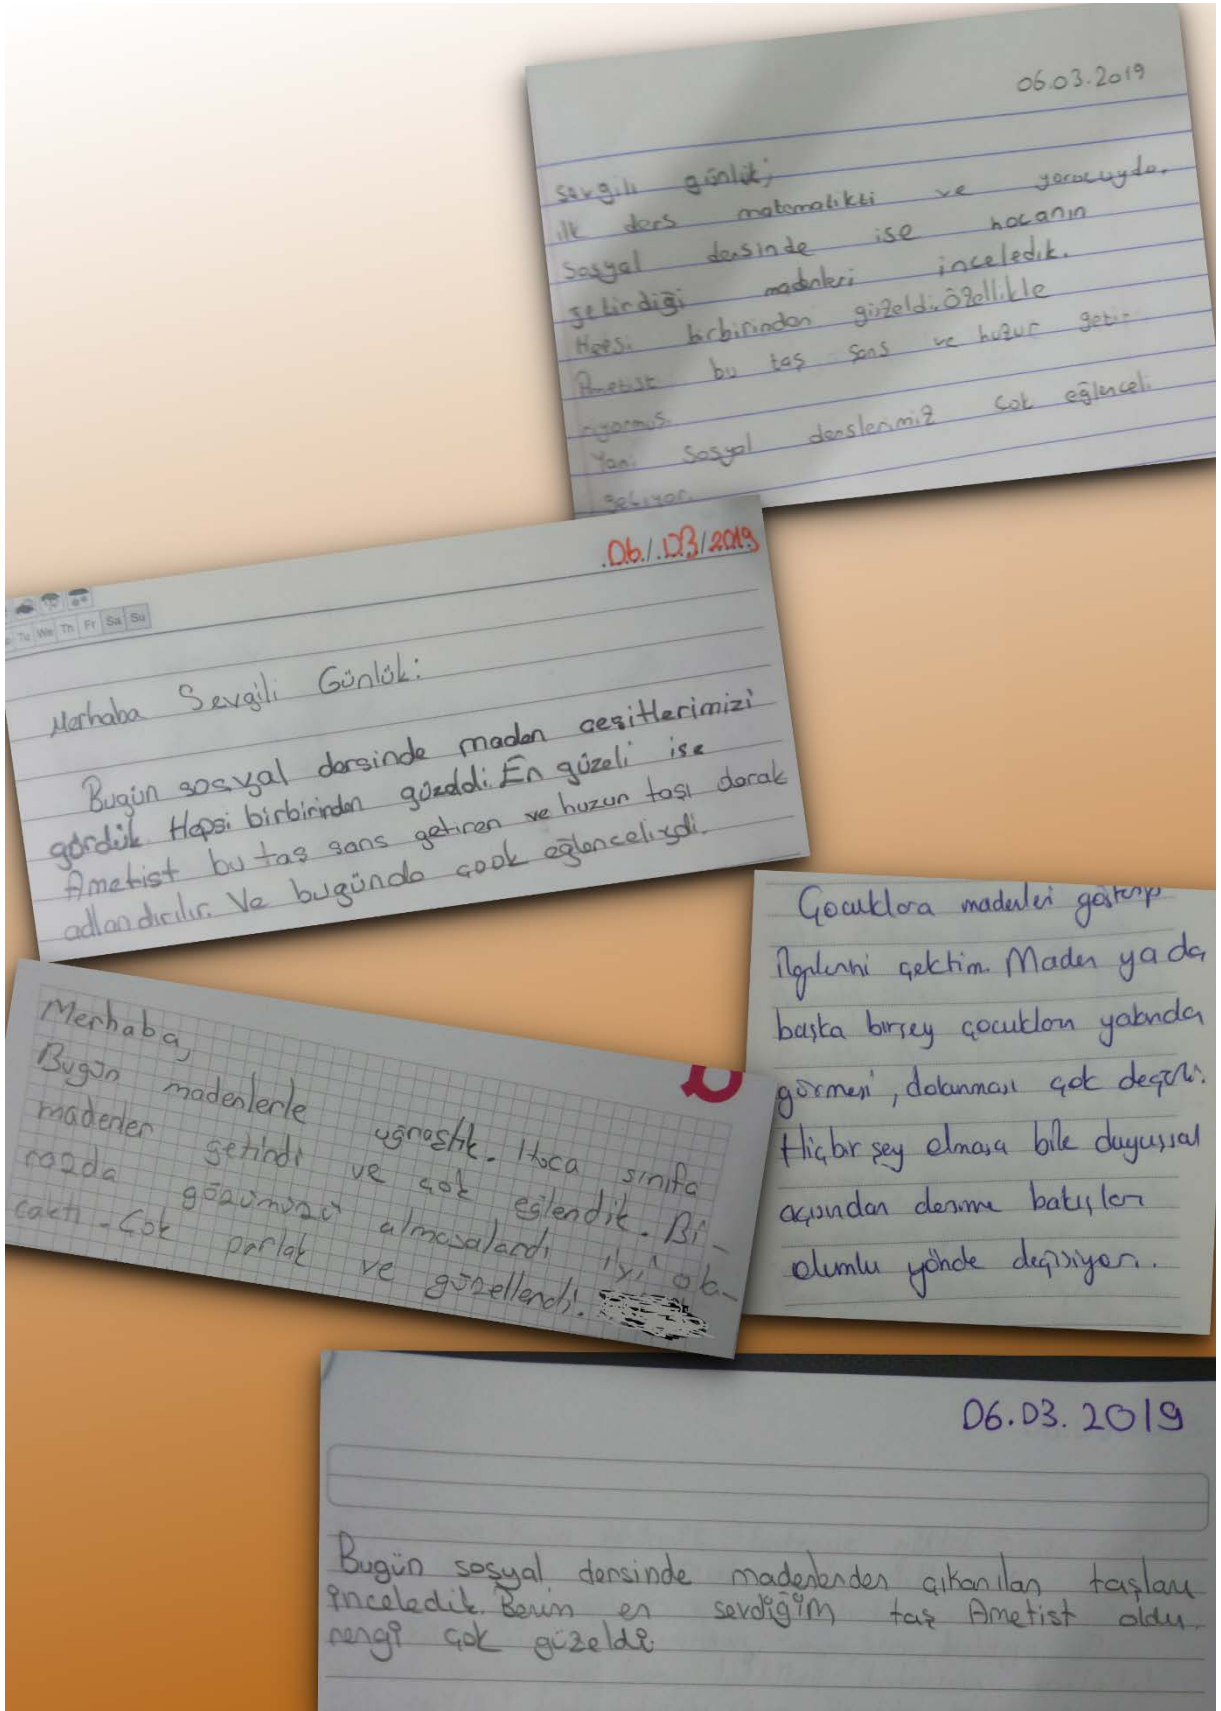 06.03.2019
sevgili günlük;
ilk ders matematikti ve yorucuydu.
Sosyal dersinde ise hocanın
getirdiği madenleri inceledik.
Hepsi birbirinden güzeldi. Özellikle
Ametist bu taş şans ve huzur geti-
riyormuş.
Yani Sosyal derslerimiz çok eğlenceli
geçiyor.
06/03/2019
Tu We Th Fr Sa Su
Merhaba Sevgili Günlük:
Bugün sosyal dersinde maden çeşitlerimizi
gördük. Hepsi birbirinden güzeldi. En güzeli ise
Ametist bu taş şans getiren ve huzur taşı darak
adlandırılır. Ve bugünde çook eğlenceliydi.
Çocuklara madenleri gösterip
ilgilerini çektim. Maden ya da
başka birşey çocukların yakında
görmesi, dokunması çok değerli.
Hiçbir şey olmasa bile duyuşsal
açısından derse bakışları
olumlu yönde değişiyor.
Merhaba,
Bugün madenlerle uğraştık. Hoca sınıfa
madenler getirdi ve çok eğlendik. Bi-
razda gözümüzü almasalardı iyi ola-
caktı. Çok parlak ve güzellerdi.
06.03.2019
Bugün sosyal dersinde madenlerden çıkarılan taşları
inceledik. Benim en sevdiğim taş Ametist oldu.
rengi çok güzeldi